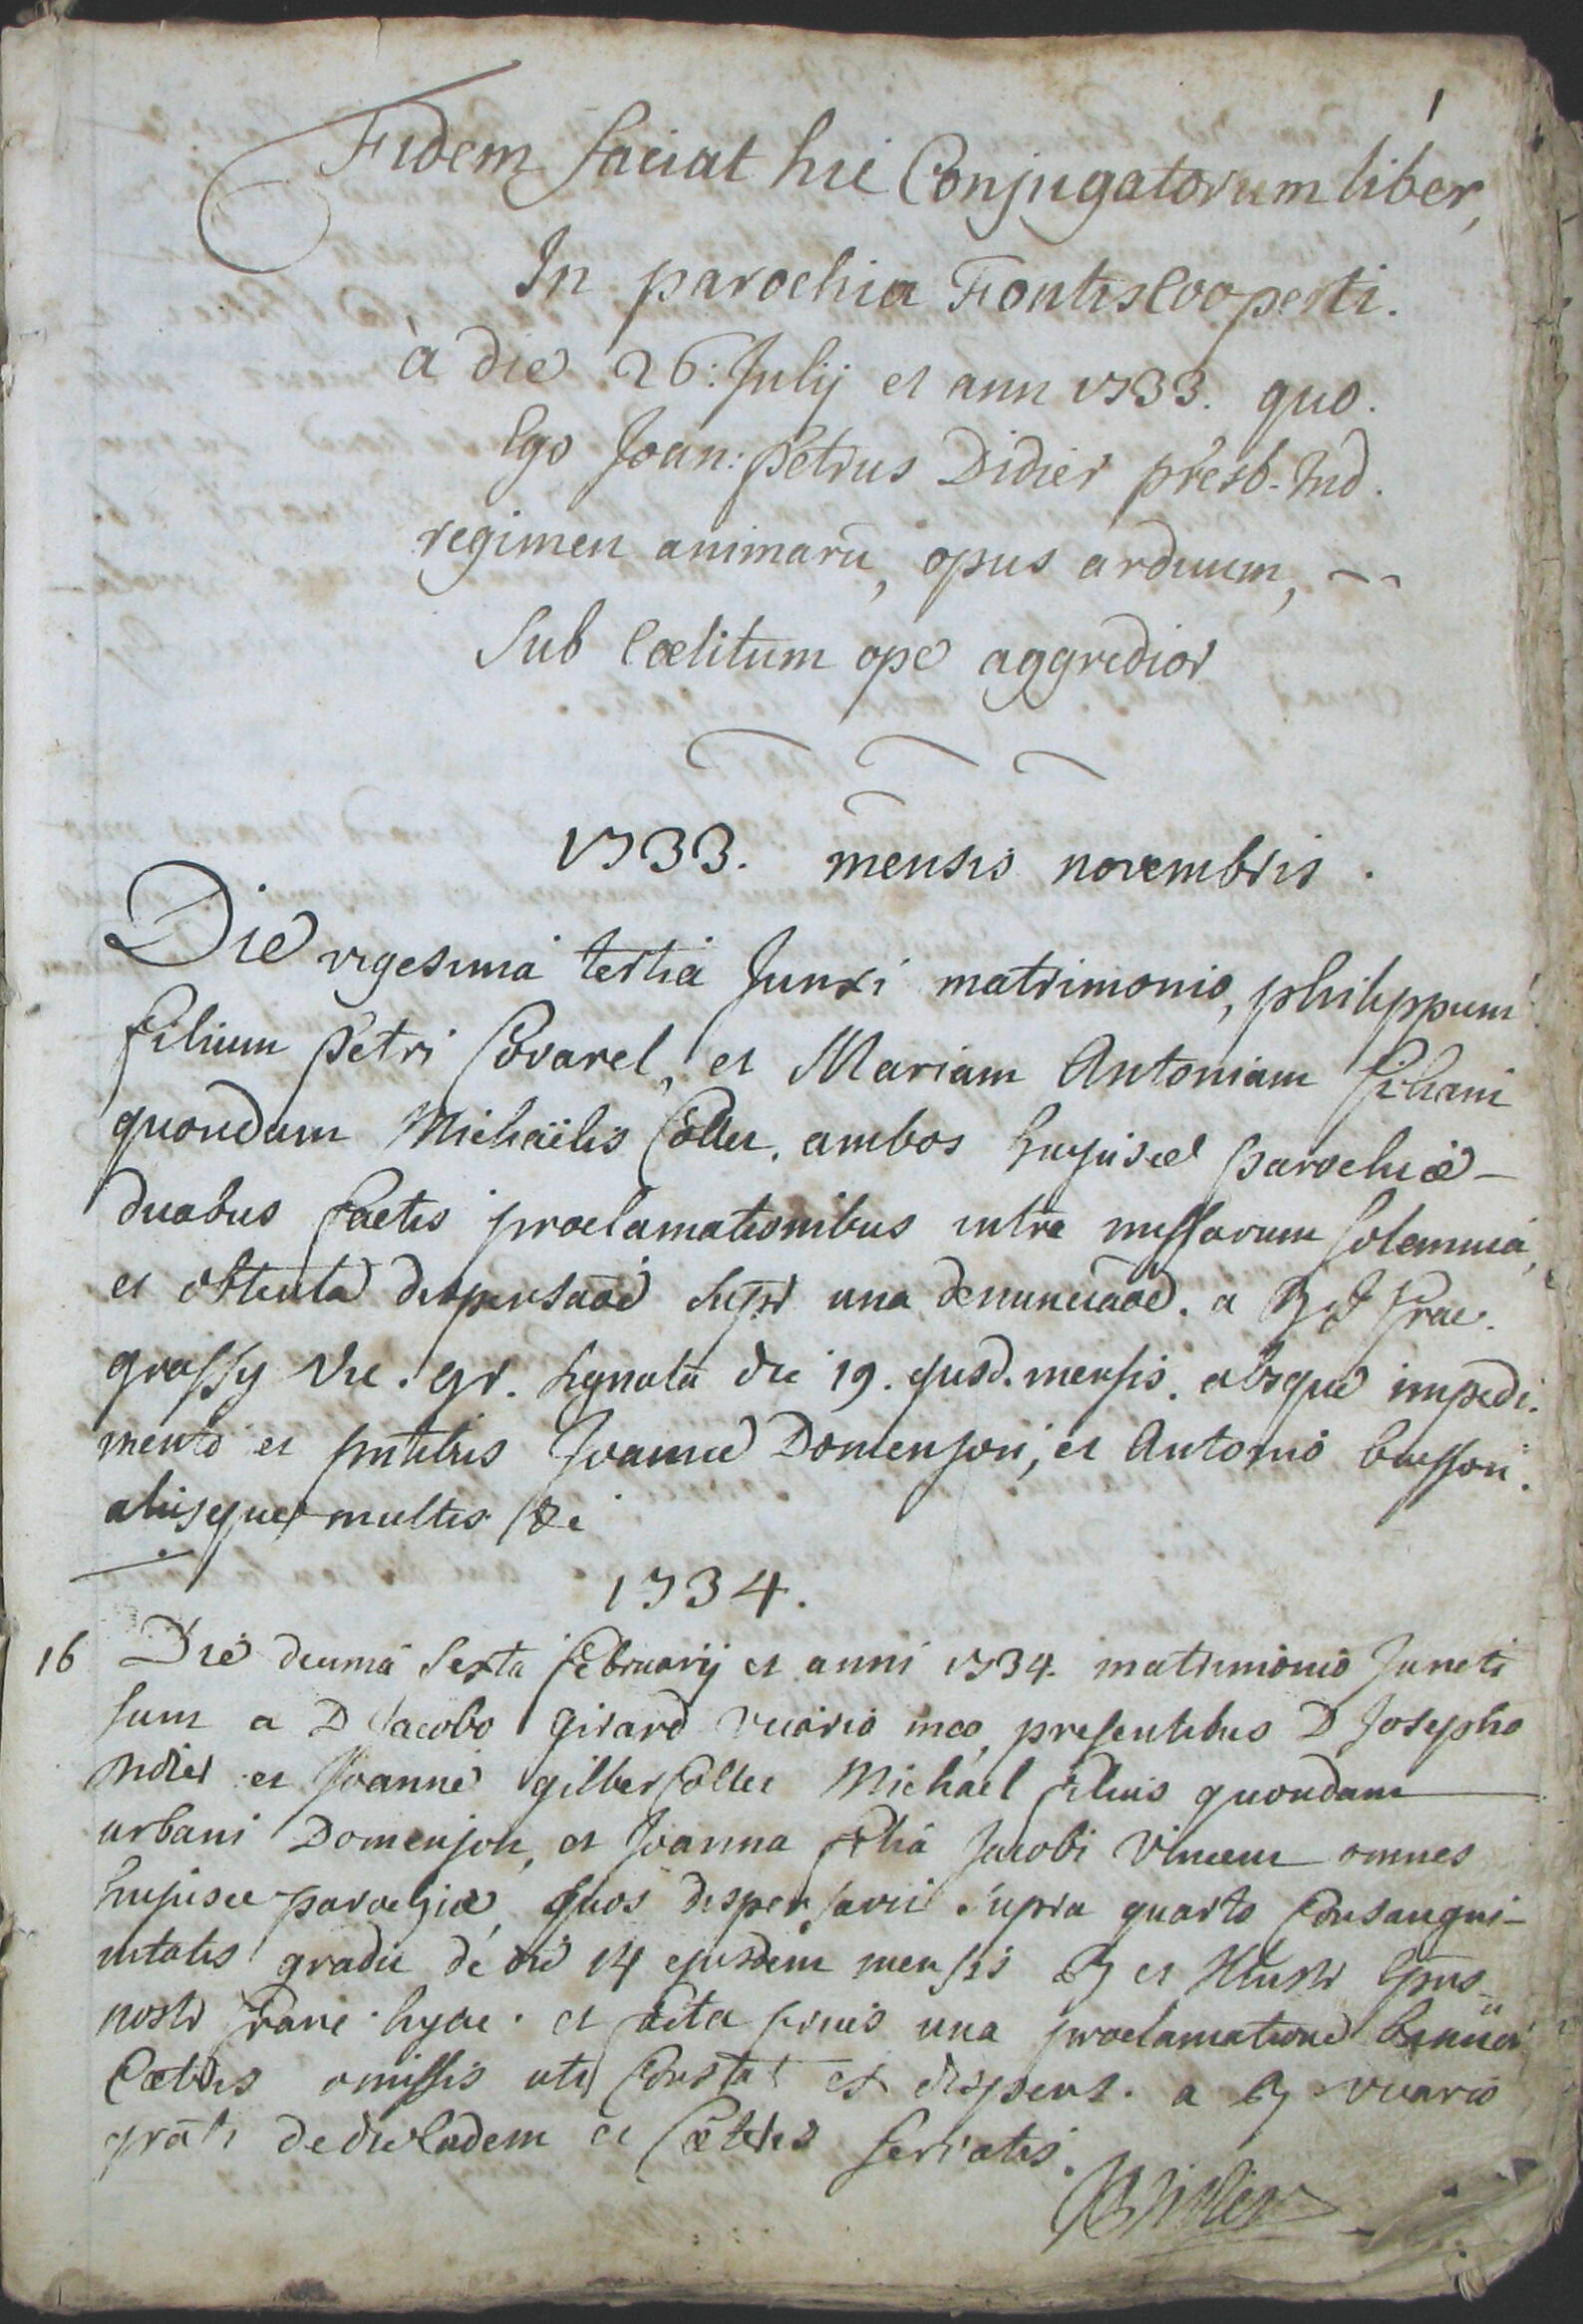 1
Fidem faciat hic Conjugatorum liber,
In parochia Fontiscooperti.
à die 26: Julij et ann 1733. quo.
Ego Joan: Petrus Didier presb. Ind.
regimen animarū, opus arduum,
Sub Cœlitum ope aggredior
1733. mensis novembris.
Die vigesima tertia Junxi matrimonio, philippum
filium Petri Covarel, et Mariam Antoniam filiam
quondam Michaëlis Coller. ambos hujusce parochiæ
duabus factis proclamationibus intra missarum solemnia,
et obtenta dispensaōe super una denunciaōe. a
grassy Vic. gr. signata die 19. ejusd. mensis. absque impedi.
mento et pntibus Joanne Domenjon, et Antonio buisson.
aliisque multis
1734.
16 Die decima Sexta februarij et anni 1734. matrimonio Juncti
sunt a D Jacobo Girard vicario meo, presentibus D Josepho
Didier et Joanne gilber Coller Michael filius quondam
urbani Domenjon, et Joanna filia Jacobi Vincen omnes
hujusce parochiæ, quos dispensavit supra quarto Consangui-
nitatis gradu de die 14 ejusdem mensis et
nostri et una proclamatione
Cæteris omissis uti Constat et dispens. a vicario
de die Eadem et Cæteris servatis.
Didier